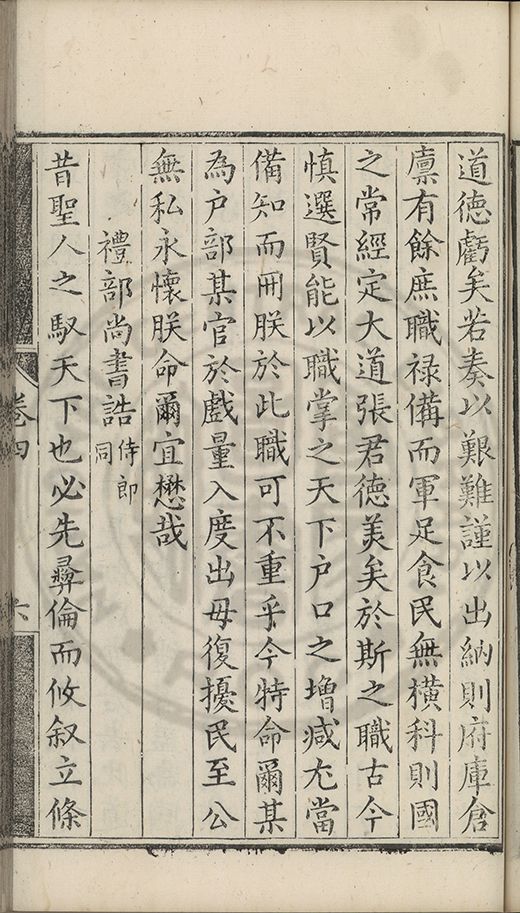 道德虧矣若奏以艱難謹以出納則府庫倉
廩有餘庶職祿備而軍足食民無橫科則國
之常經定大道張君德美矣於斯之職古今
慎選賢能以職掌之天下戶口之增减尤當
備知而冊朕於此職可不重乎今特命爾某
為戶部某官於戲量入度出毋復擾民至公
無私永懷朕命爾宜懋哉
禮部尚書誥侍郎同
昔聖人之馭天下也必先彞倫而攸叙立條
卷四
六